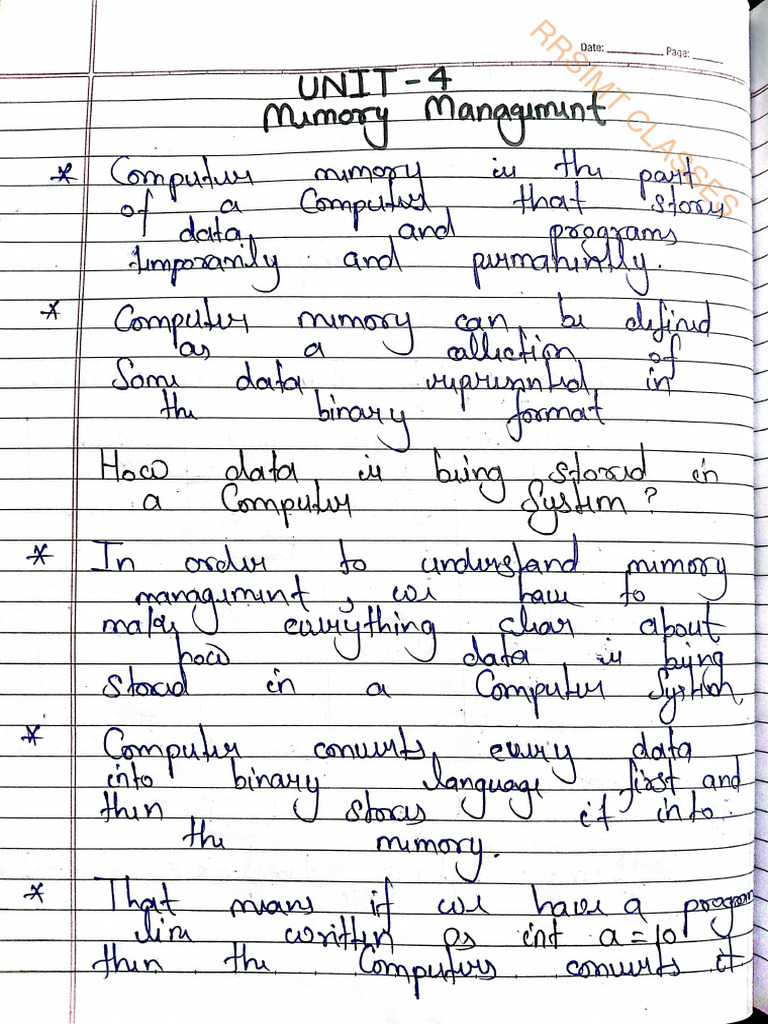 Date: ________ Page: ______
RRSIMT CLASSES
UNIT-4
Memory Management
* Computer memory is the part
of a Computer that stores
data and programs
temporarily and permanently.
* Computer memory can be defined
as a collection of
Some data represented in
the binary format
How data is being stored in
a Computer System?
* In order to understand memory
management, we have to
make everything clear about
how data is being
stored in a Computer System
* Computer converts every data
into binary language first and
then stores it into
the memory.
* That means if we have a program
line written as int a=10
then the Computers converts it